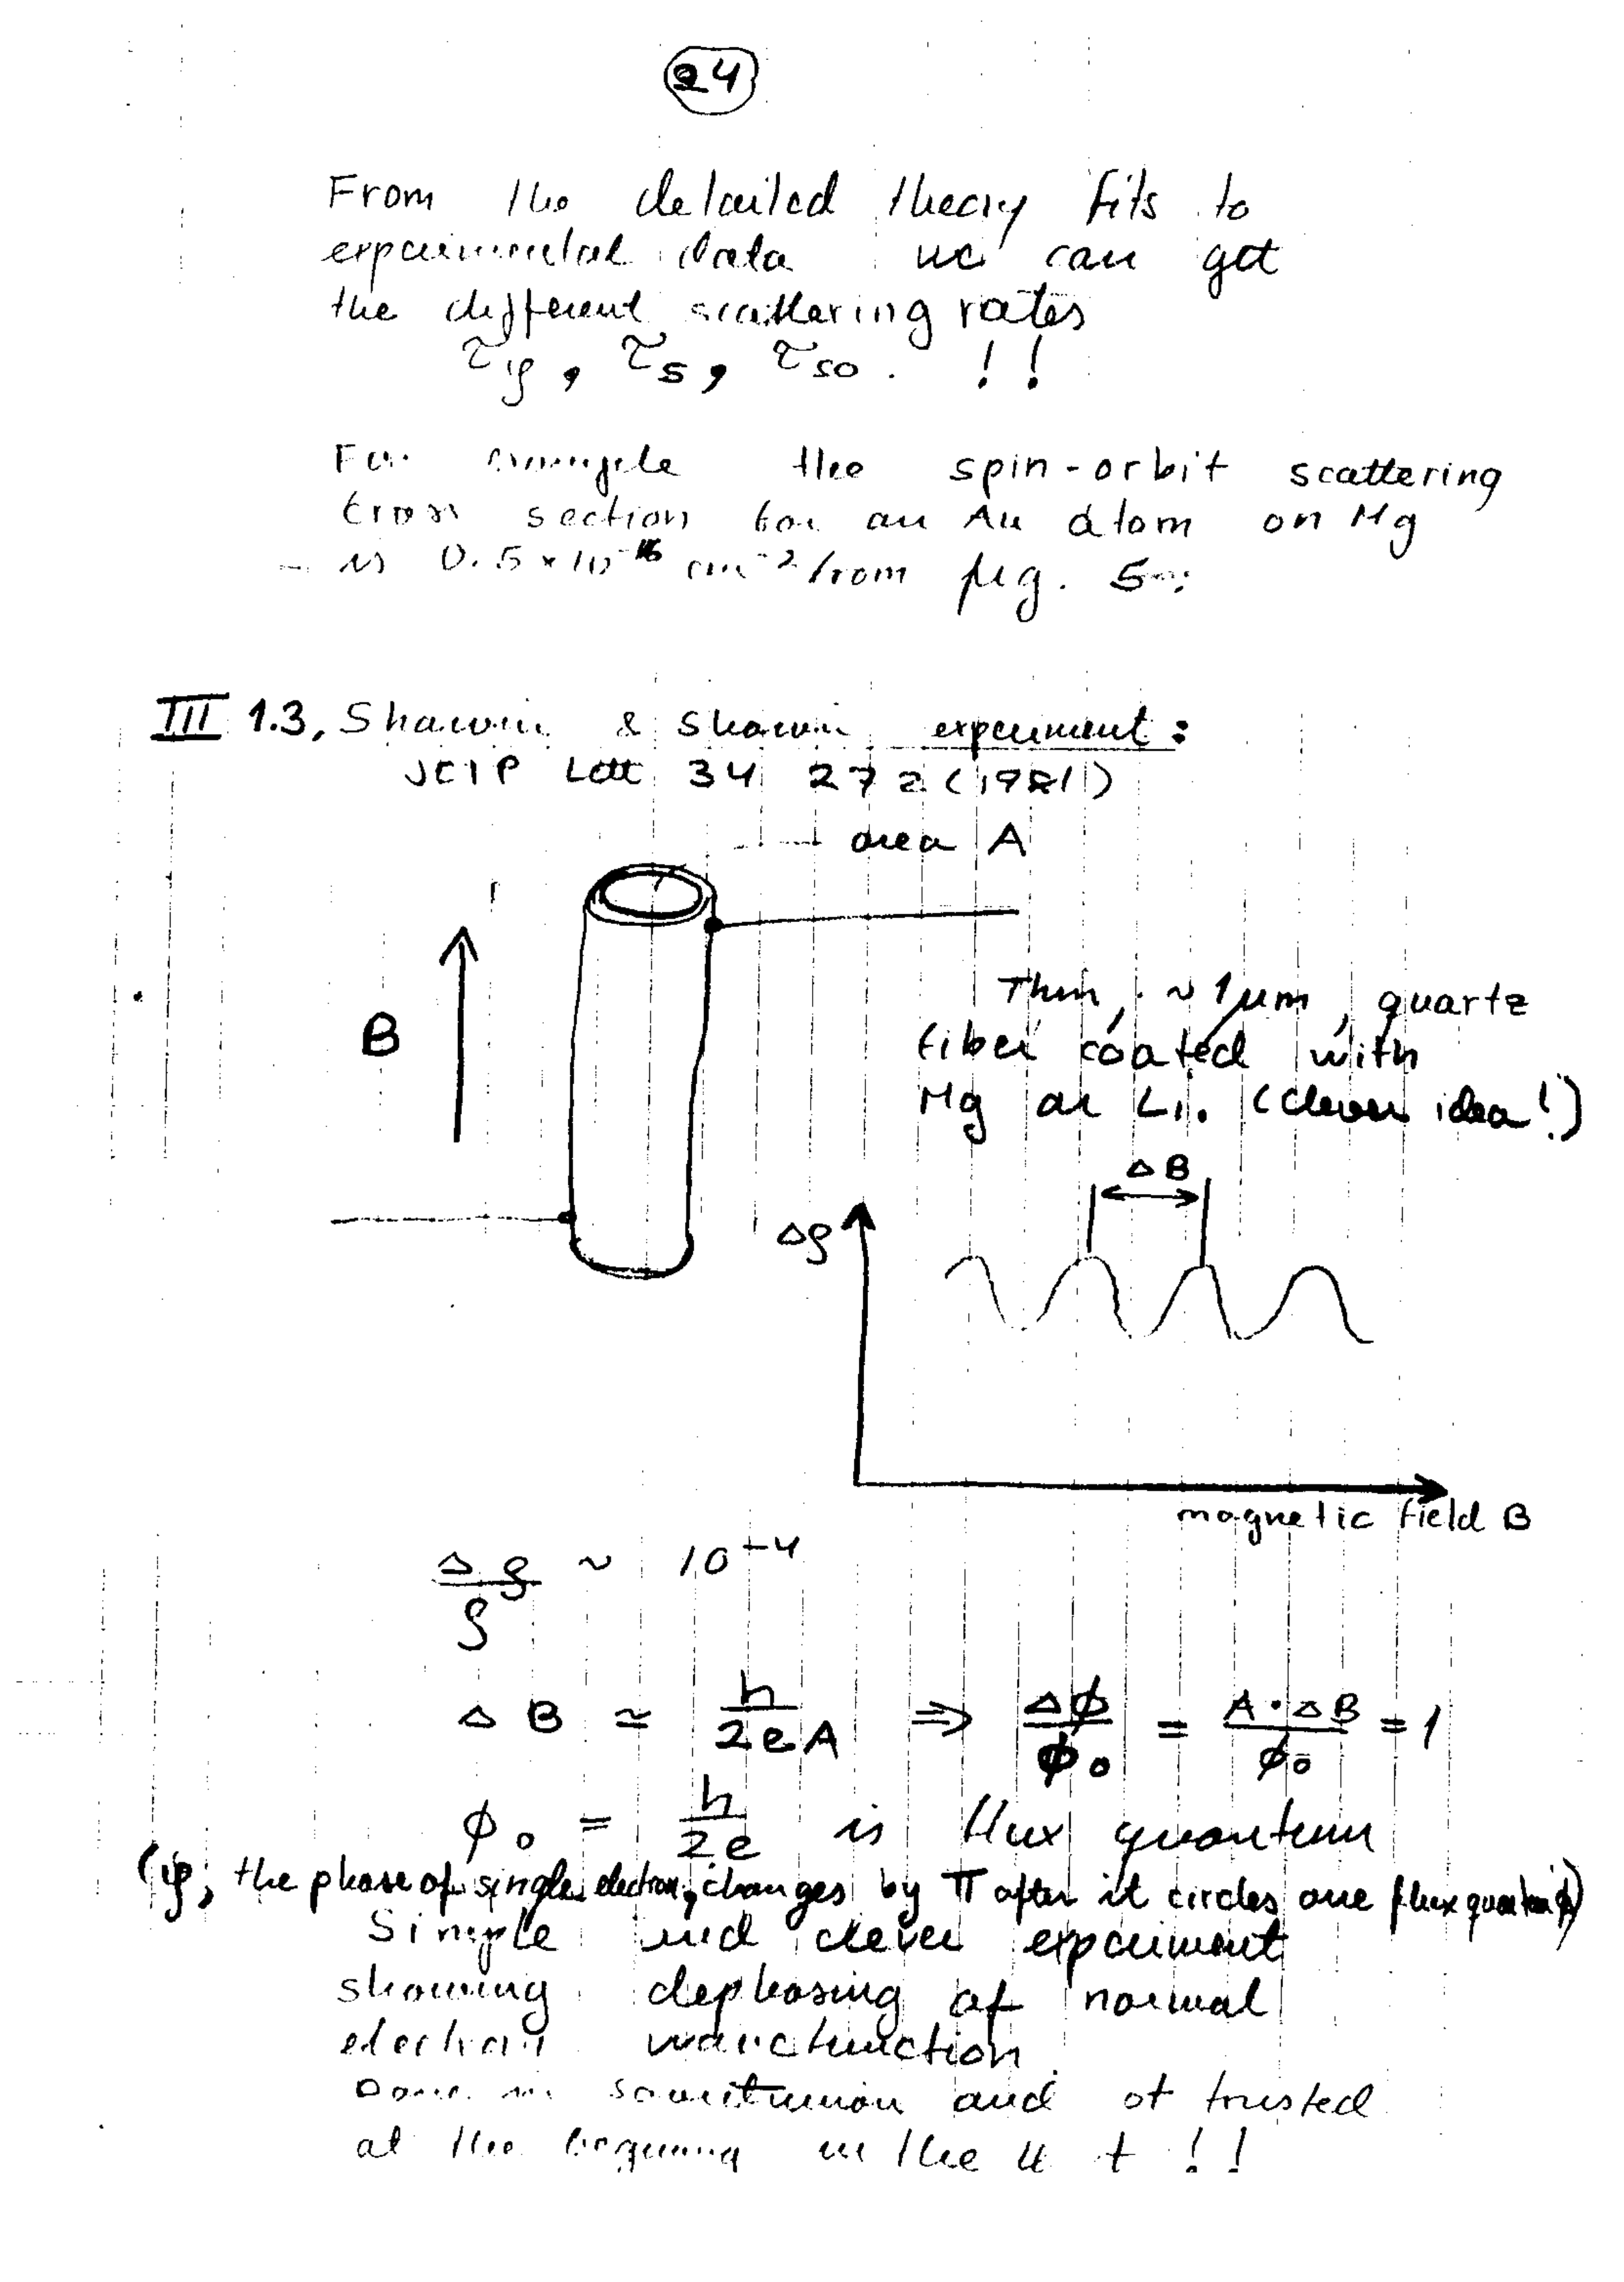 24
From the detailed theory fits to
experimental data we can get
the different scattering rates
τφ, τs, τso. !!
For example the spin-orbit scattering
cross section for an Au atom on Mg
is 0.5×10⁻¹⁶ cm⁻² from fig. 5
III 1.3, Sharvin & Sharvin experiment:
JETP Lett 34 272 (1981)
area A
B
Thin, ~1μm, quartz
fiber coated with
Mg or Li. (clever idea!)
ΔB
Δρ
magnetic field B
Δρ/ρ ~ 10⁻⁴
ΔB ≃ h/2eA ⇒ Δϕ/ϕ₀ = A·ΔB/ϕ₀ = 1
ϕ₀ = h/2e is flux quantum
(φ, the phase of single electron, changes by π after it circles one flux quantum)
Simple and clever experiment
showing dephasing of normal
electron wavefunction
Done in and trusted
at the in the !!